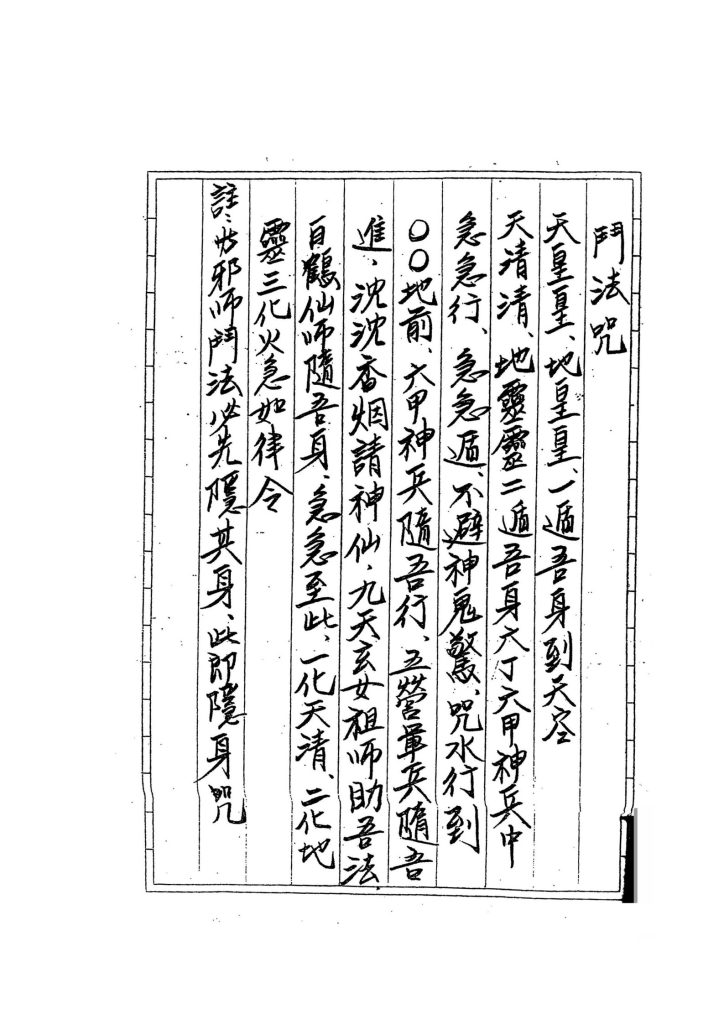 鬥法咒
天皇皇、地皇皇、一遁吾身到天空
天清清、地靈靈二遁吾身六丁六甲神兵中
急急行、急急遁、不避神鬼驚、咒水行到
○○地前、六甲神兵隨吾行、五營軍兵隨吾
進、沈沈香烟請神仙、九天玄女祖师助吾法
白鶴仙师隨吾身、急急至此、一化天清、二化地
靈三化火急如律令
註:与邪师鬥法必先隱其身、此即隱身咒